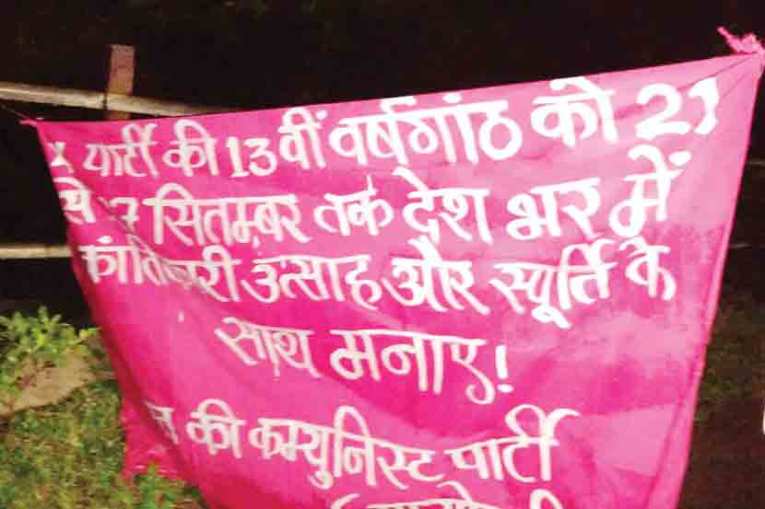 पार्टी की 13 वीं वर्षगांठ को 21
से 27 सितम्बर तक देश भर में
क्रांतिकारी उत्साह और स्पूर्ति के
साथ मनाए!
की कम्युनिस्ट पार्टी